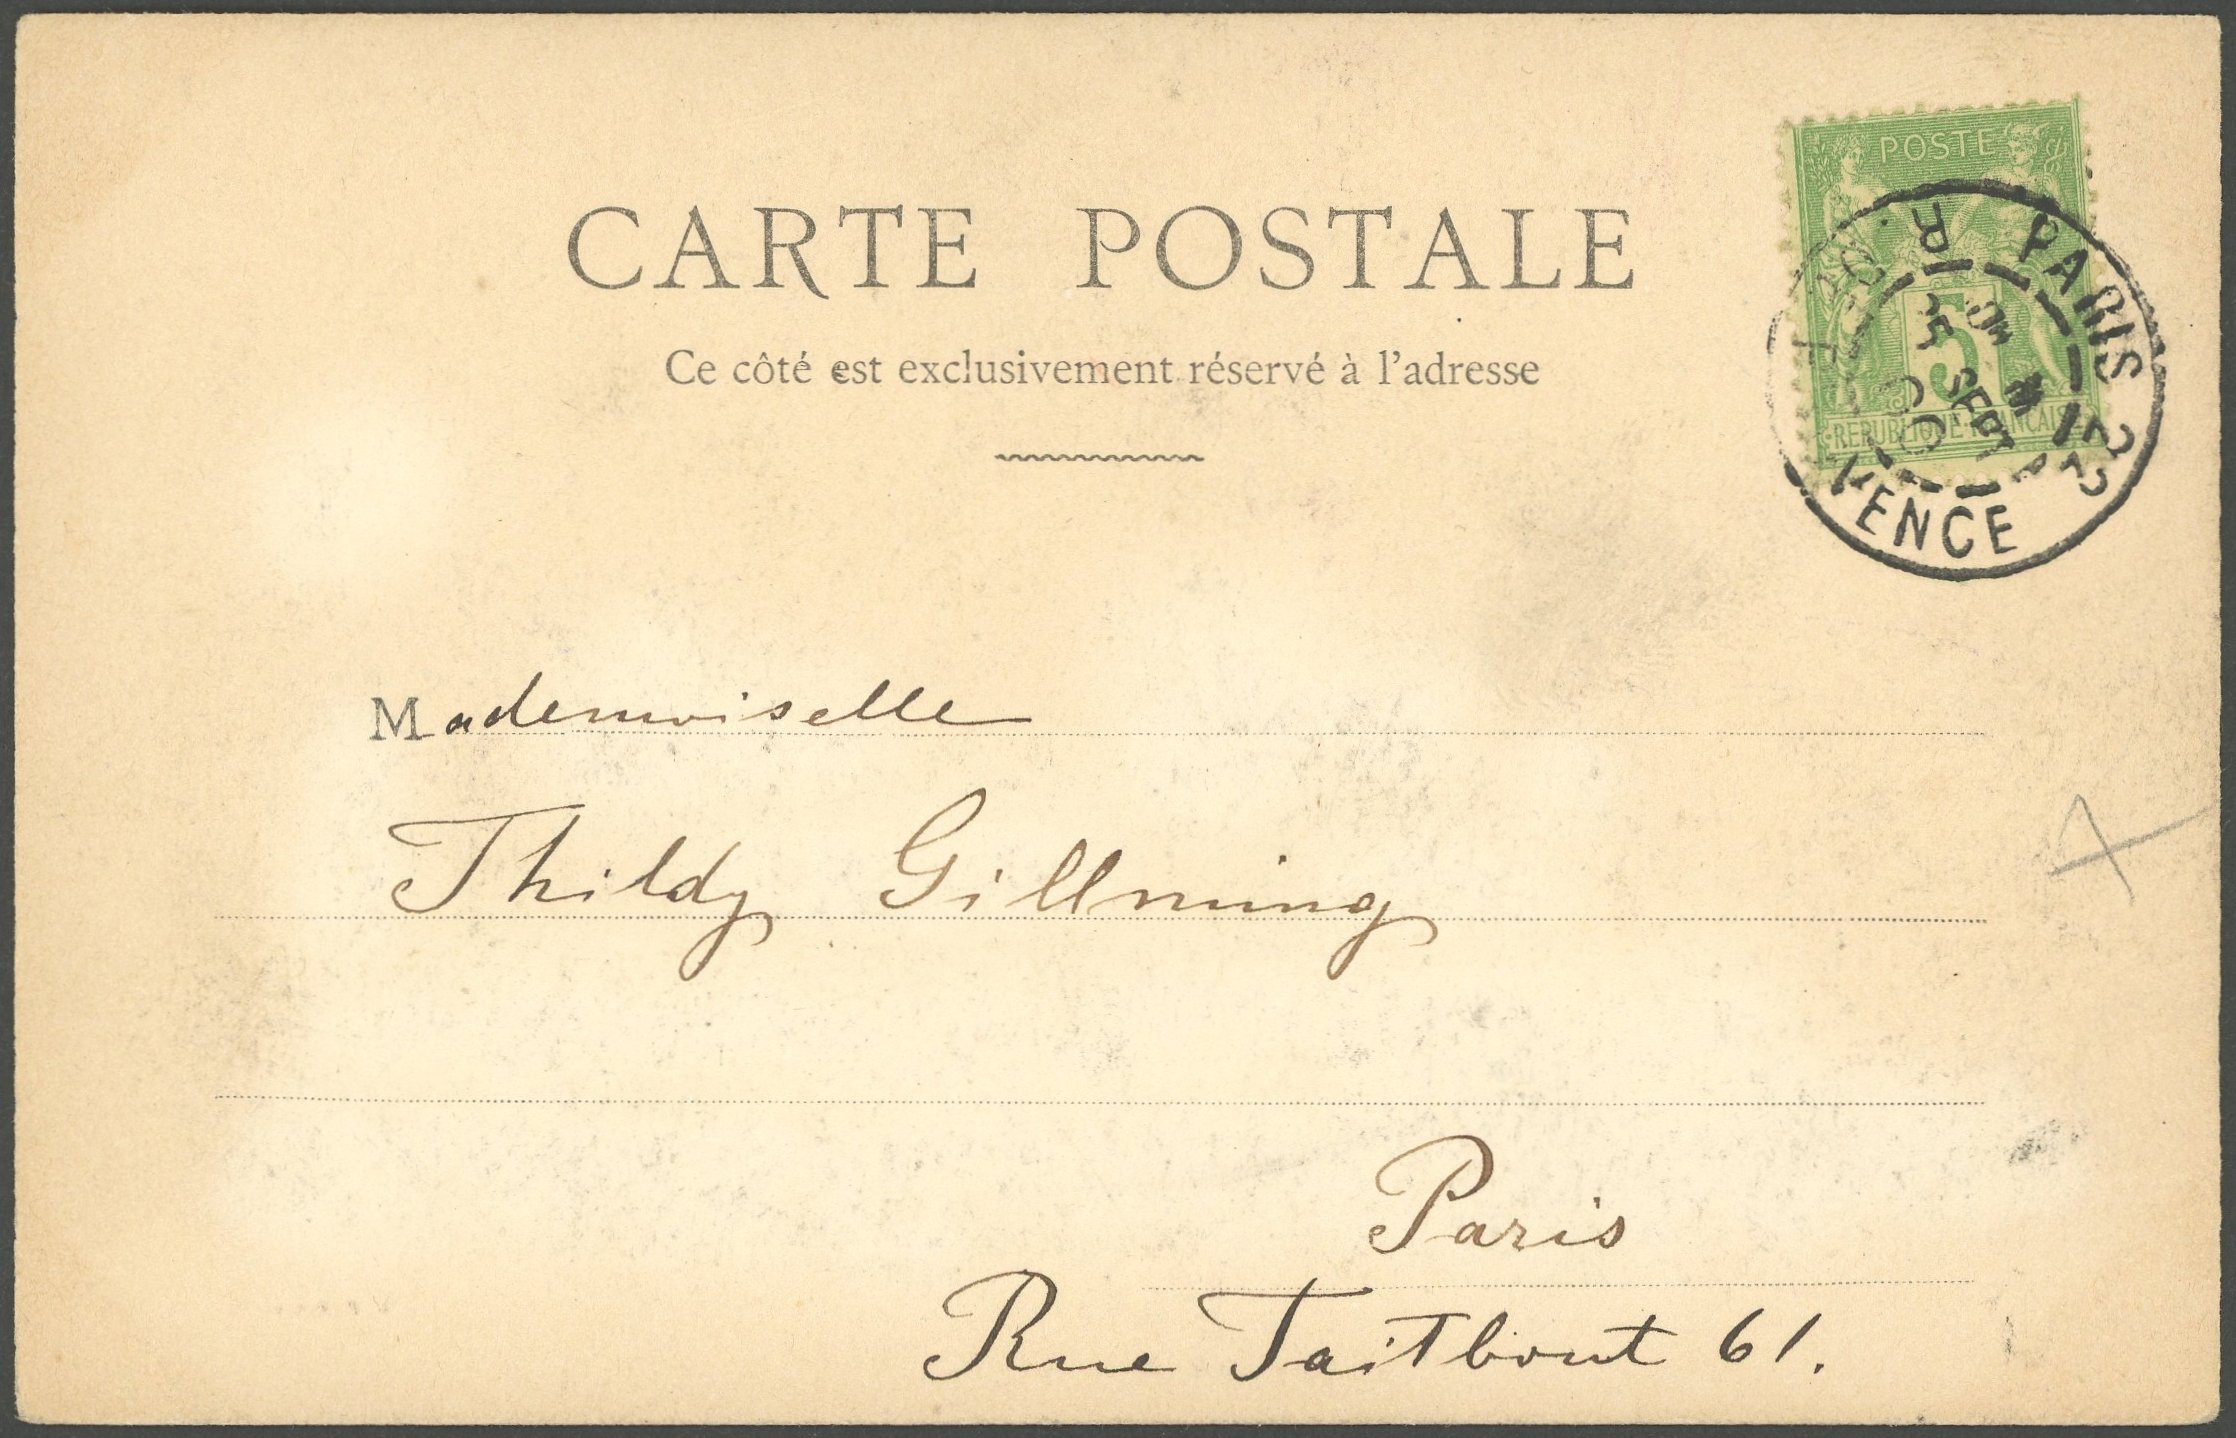 CARTE POSTALE
Ce côté est exclusivement réservé à l'adresse
POSTE
5
REPUBLIQUE FRANCAISE
PARIS
25 SEPT
00
VENCE
Mademoiselle
Thildy Gillming
Paris
Rue Taitbout 61.